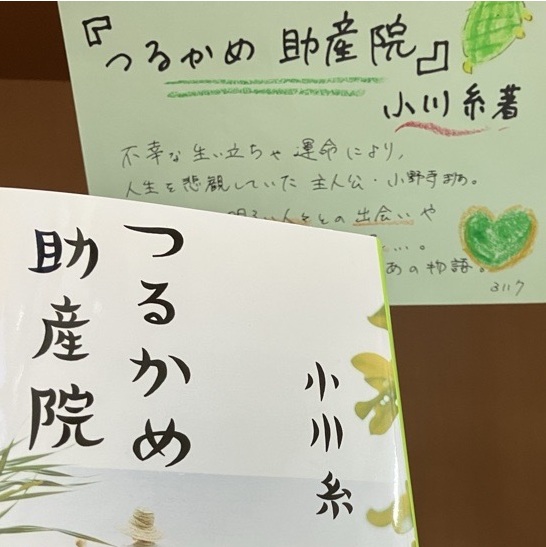 『つるかめ 助産院』
小川 糸 著
不幸な生い立ちや運命により、
人生を悲観していた主人公・小野寺まりあ。
明るい人々との出会いや
…。
あの物語。
つるかめ
助産院
小川 糸